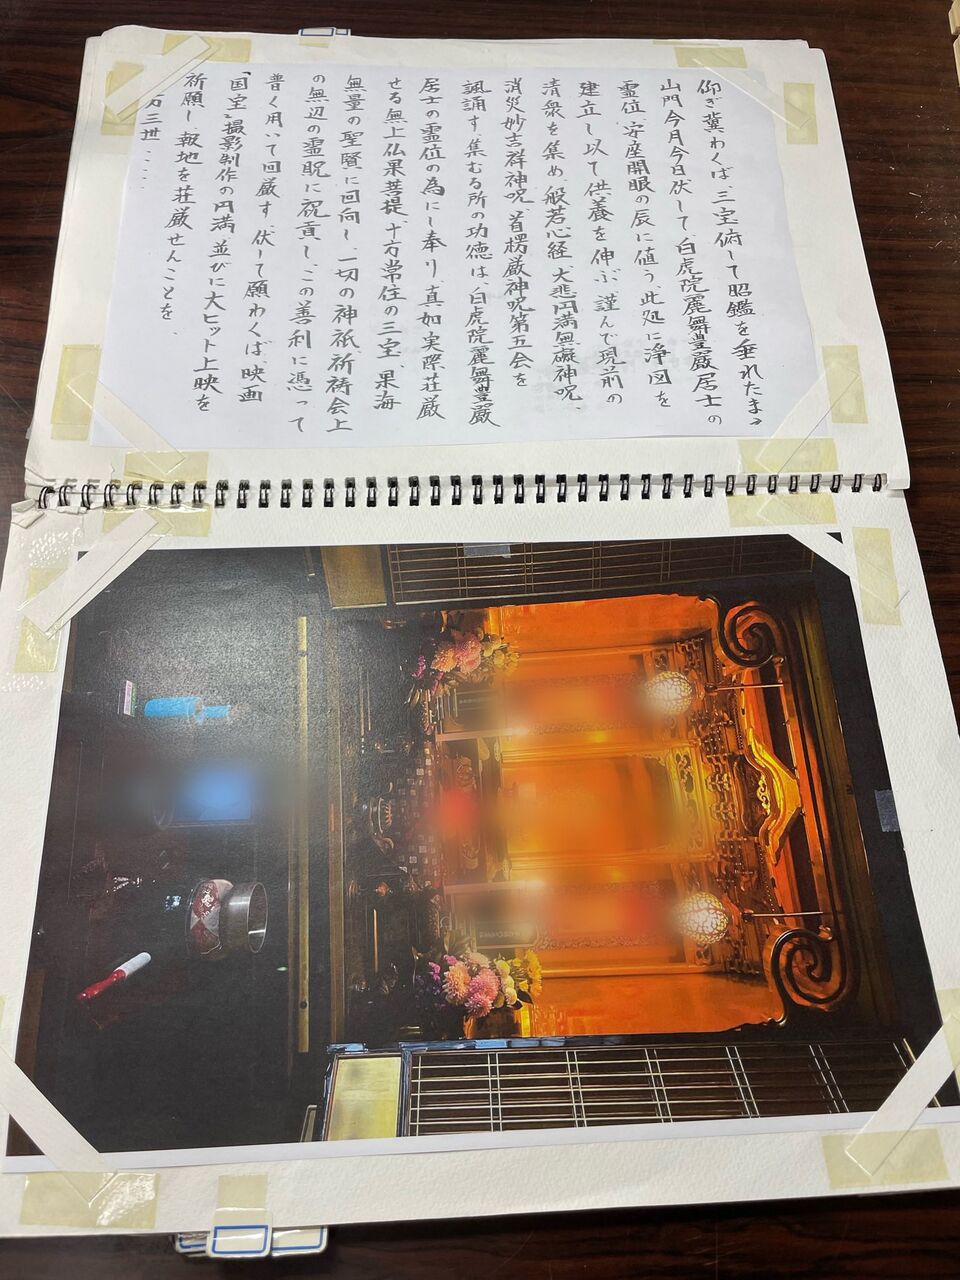 仰ぎ冀わくは、三宝俯して昭鑑を垂れたまえ
山門今月今日伏して、白虎院麗舞豊巌居士の
霊位、安座開眼の辰に値う、此処に浄図を
建立し以て供養を伸ぶ、謹んで現前の
清衆を集め、般若心経、大悲円満無礙神呪、
消災妙吉祥神呪、首楞厳神呪第五会を
諷誦す、集むる所の功徳は、白虎院麗舞豊巌
居士の霊位の為にし奉り、真如実際荘厳
せる無上仏果菩提、十方常住の三宝、果海
無量の聖賢に回向し、一切の神祇、祈祷会上
の無辺の霊貺に祝貢し、この善利に憑って
普く用いて回厳す、伏して願わくば、映画
「国宝」撮影制作の円満並びに大ヒット上映を
祈願し、報地を荘厳せんことを、
万三世‥‥